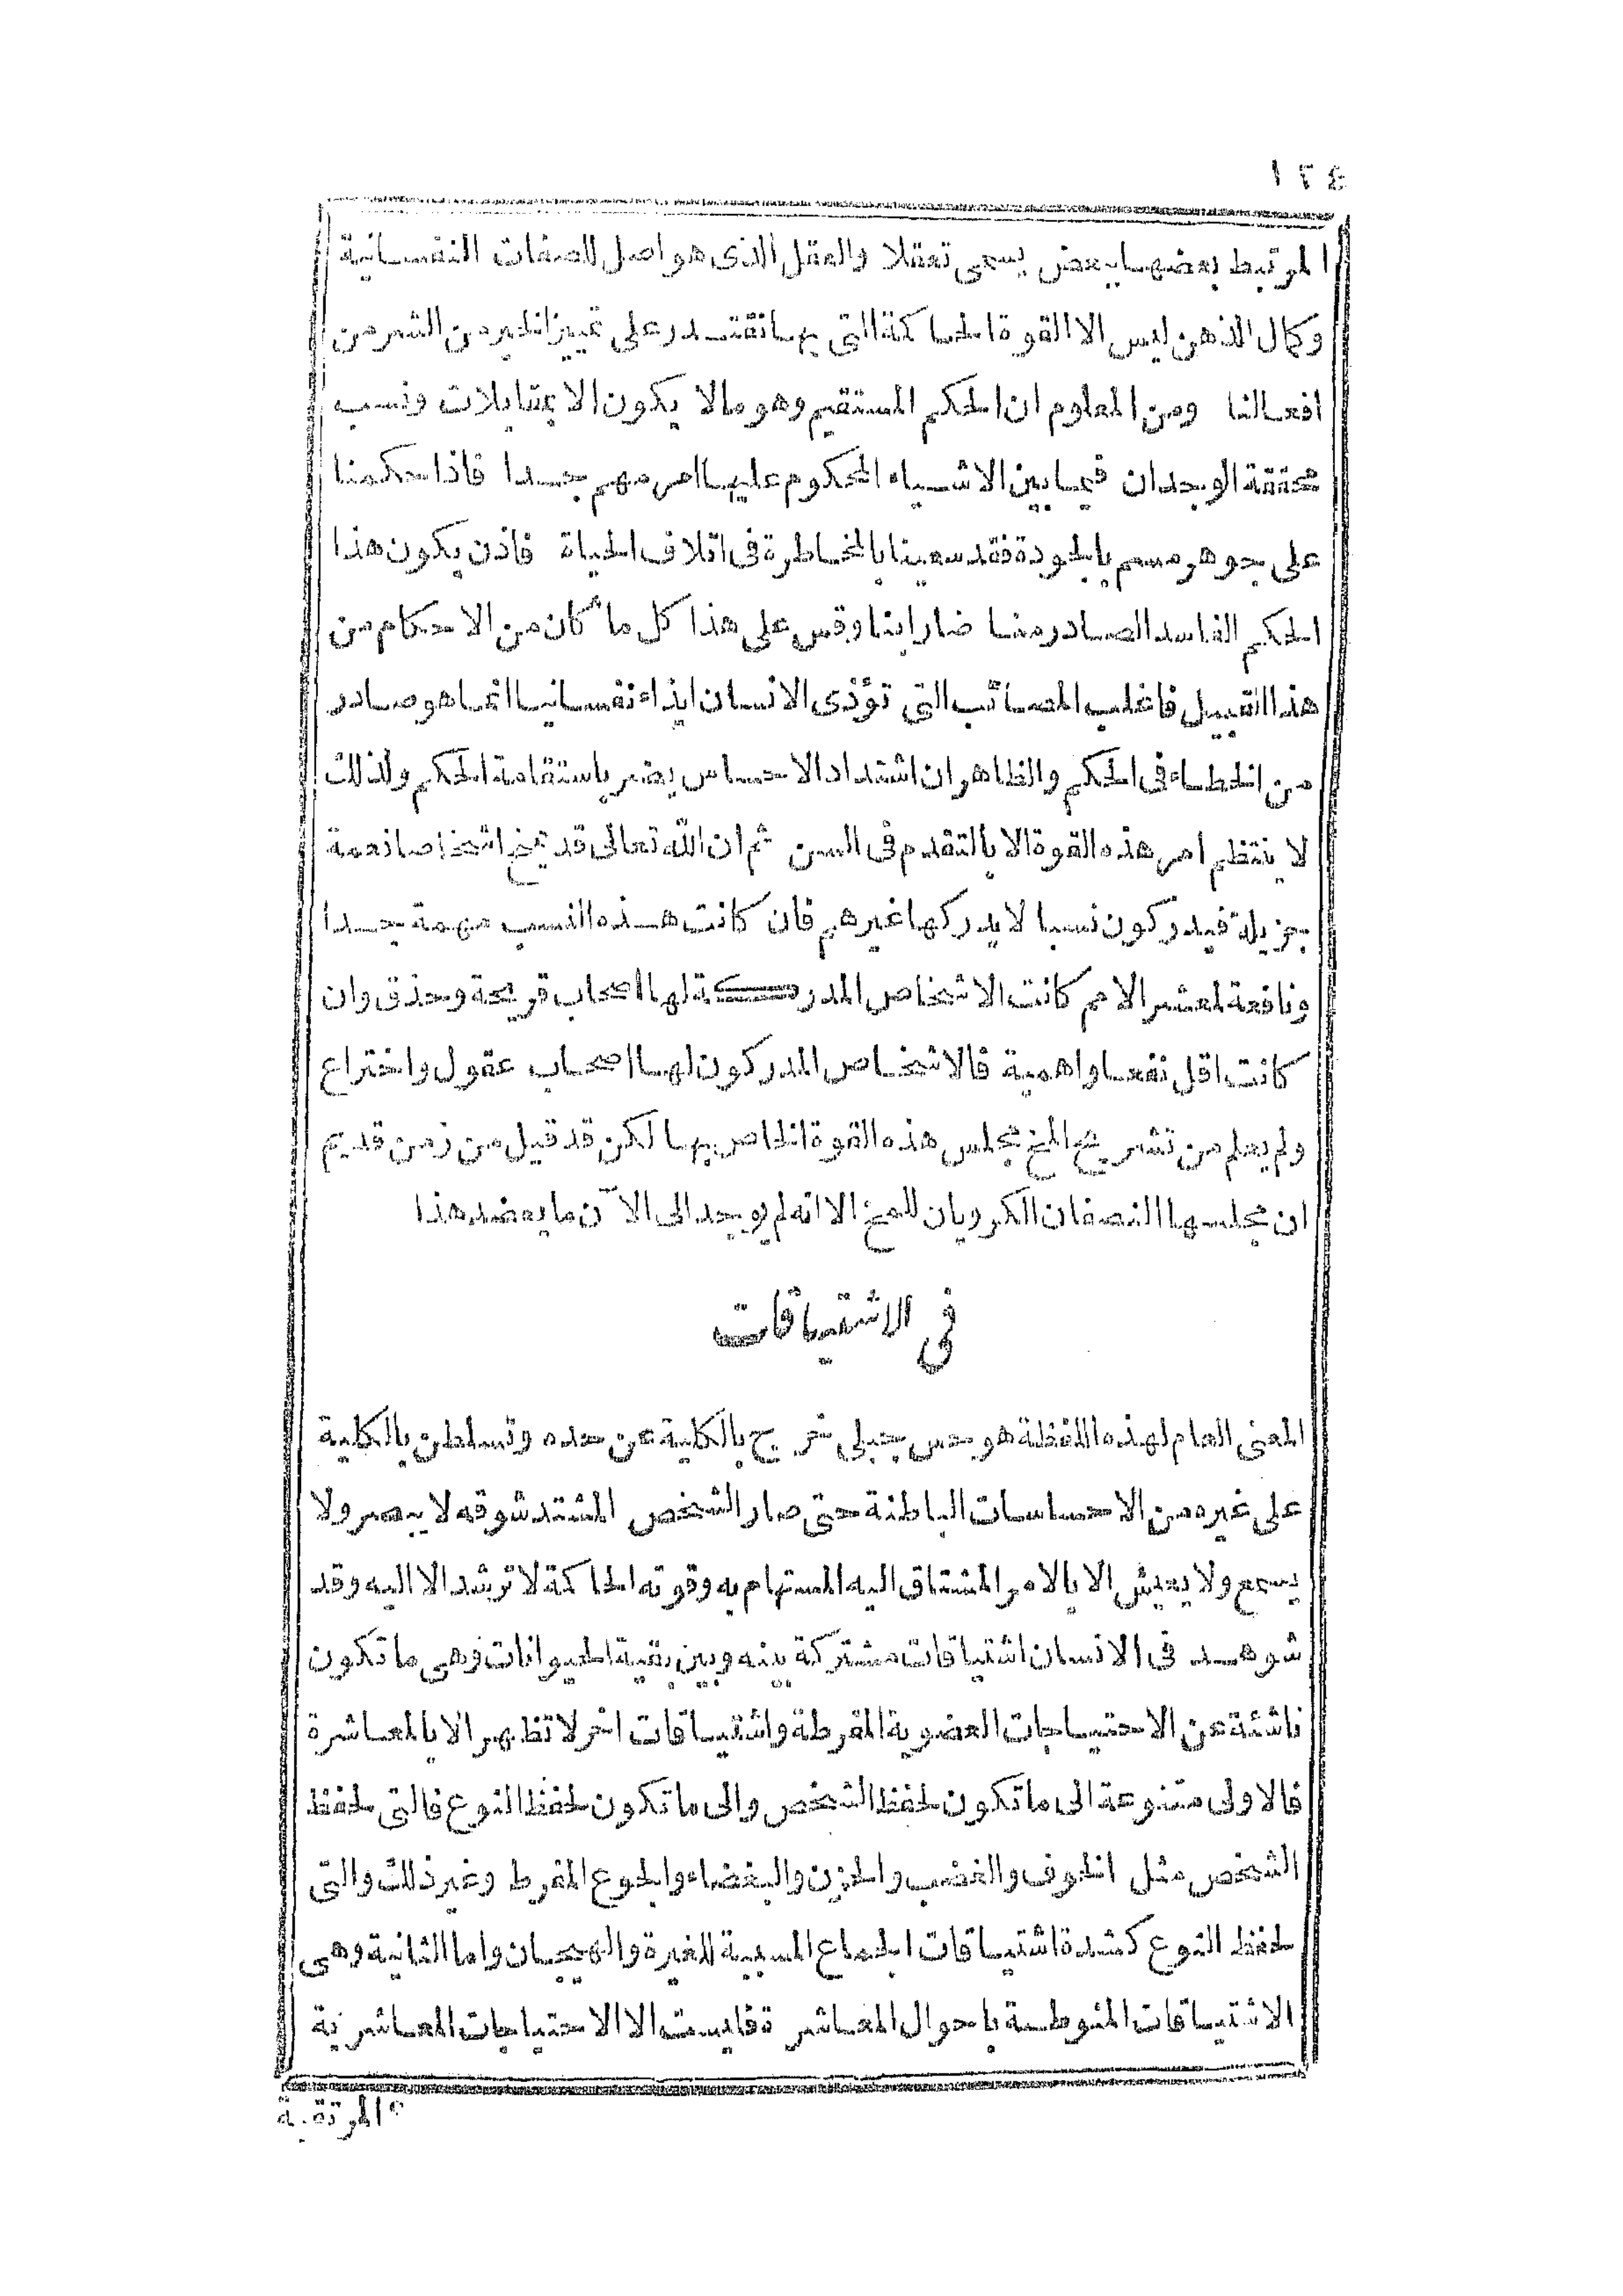 ١٢٤
المرتبط بعضها ببعض يسمى تعقلا والعقل الذى هو اصل للصفات النفسانية
وكمال الذهن ليس الا القوة الحاكمة التى بها نقتدر على تمييز الخير من الشر من
افعالنا ومن المعلوم ان الحكم المستقيم وهو ما لا يكون الا بمقابلات ونسب
محققة الوجدان فيما بين الاشياء المحكوم عليها امر مهم جدا فاذا حكمنا
على جوهر مسم بالجودة فقد سعينا بالمخاطرة فى اتلاف الحياة فاذن يكون هذا
الحكم الفاسد الصادر منا ضارا بنا وقس على هذا كل ما كان من الاحكام من
هذا القبيل فاغلب المصائب التى تؤذى الانسان ايذاء نفسانيا انما هو صادر
من الخطاء فى الحكم والظاهر ان اشتداد الاحساس يضر باستقامة الحكم ولذلك
لا ينتظم امر هذه القوة الا بالتقدم فى السن ثم ان الله تعالى قد يمنح اشخاصا نعمة
جزيلة فيدركون نسبا لا يدركها غيرهم فان كانت هذه النسب مهمة جدا
ونافعة لمعشر الامم كانت الاشخاص المدركة لها اصحاب قريحة وحذق وان
كانت اقل نفعا واهمية فالاشخاص المدركون لها اصحاب عقول واختراع
ولم يعلم من تشريح المخ مجلس هذه القوة الخاص بها لكن قد قيل من زمن قديم
ان مجلسها النصفان الكرويان للمخ الا انه لم يوجد الى الآن ما يعضد هذا
فى الاشتياقات
المعنى العام لهذه اللفظة هو حس جبلى خرج بالكلية عن حده وتسلطن بالكلية
على غيره من الاحساسات الباطنة حتى صار الشخص المشتد شوقه لا يبصر ولا
يسمع ولا يعيش الا بالامر المشتاق اليه المستهام به وقوته الحاكمة لا ترشد الا اليه وقد
شوهد فى الانسان اشتياقات مشتركة بينه وبين بقية الحيوانات وهى ما تكون
ناشئة عن الاحتياجات العضوية المفرطة واشتياقات اخر لا تظهر الا بالمعاشرة
فالاولى متنوعة الى ما تكون لحفظ الشخص والى ما تكون لحفظ النوع فالتى لحفظ
الشخص مثل الخوف والغضب والحزن والبغضاء والجوع المفرط وغير ذلك والتى
لحفظ النوع كشدة اشتياقات الجماع المسببة للغيرة والهيجان واما الثانية وهى
الاشتياقات المنوطة باحوال المعاشرة فليست الا الاحتياجات المعاشرية
المرتقية